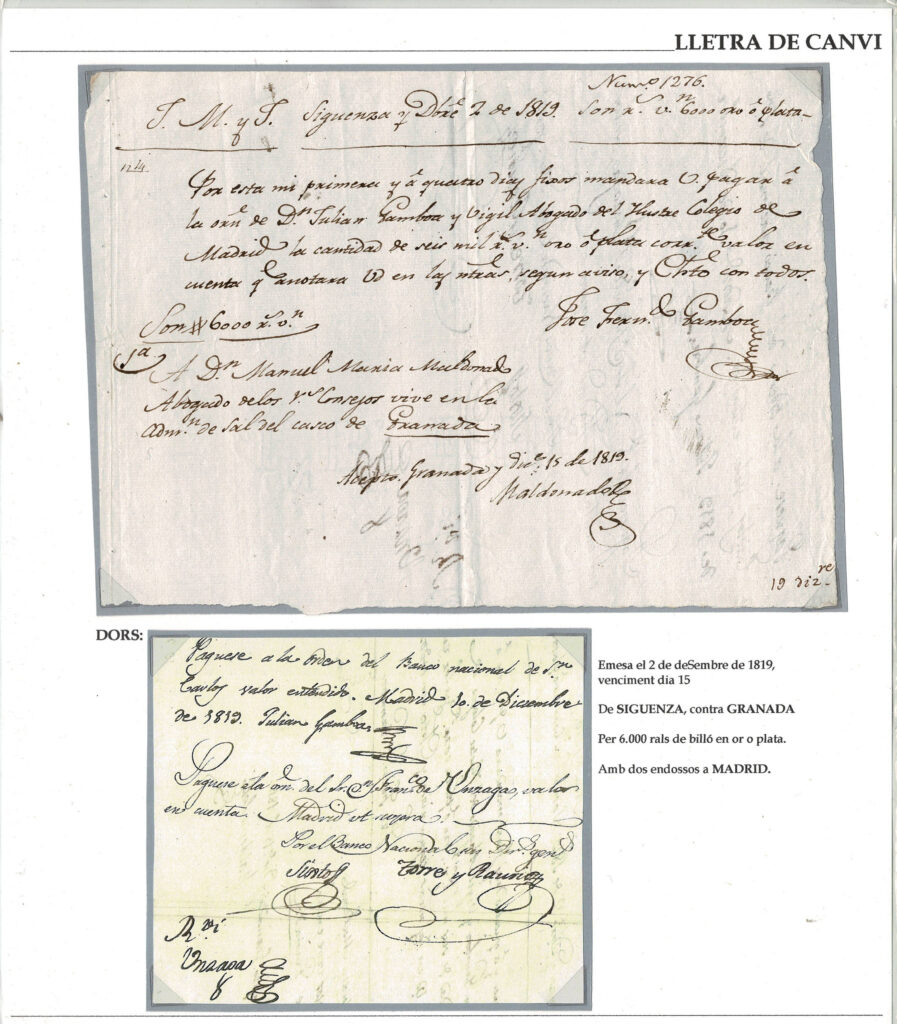 LLETRA DE CANVI
Numo. 1276.
J. M. y J. Siguenza y Dbre. 2 de 1819. Son rs. vn. 6000 oro ó plata
Por esta mi primera y á quatro dias fixos mandara V. pagar á
la orn. de Dn. Julian Gamboa y Vigil Abogado del Ilustre Colegio de
Madrid la cantidad de seis mil rs. vn. oro ó plata corrte. valor en
cuenta q. anotara V en las ntras, segun aviso, y Chto con todos.
Jose Fernd. Gamboa
Son # 6000 rs. vn.
1a
A Dn. Manuel Maria Maldonado
Abogado de los Rs. Consejos vive en la
Admn. de Sal del casco de Granada
Acepto. Granada y dice. 15 de 1819.
Maldonado
19 dizre.
DORS:
Paguese a la orden del Banco nacional de Sn.
Carlos valor entendido. Madrid 10. de Diciembre
de 1819. Julian Gamboa
Paguese á la on. del Sr. Dn. Franco. de Unzaga, valor
en cuenta. Madrid ut supra.
Por el Banco Nacional Dirs. gens.
Torre y Rauneg
Rvi
Unzaga
Emesa el 2 de deSembre de 1819,
venciment dia 15
De SIGUENZA, contra GRANADA
Per 6.000 rals de billó en or o plata.
Amb dos endossos a MADRID.